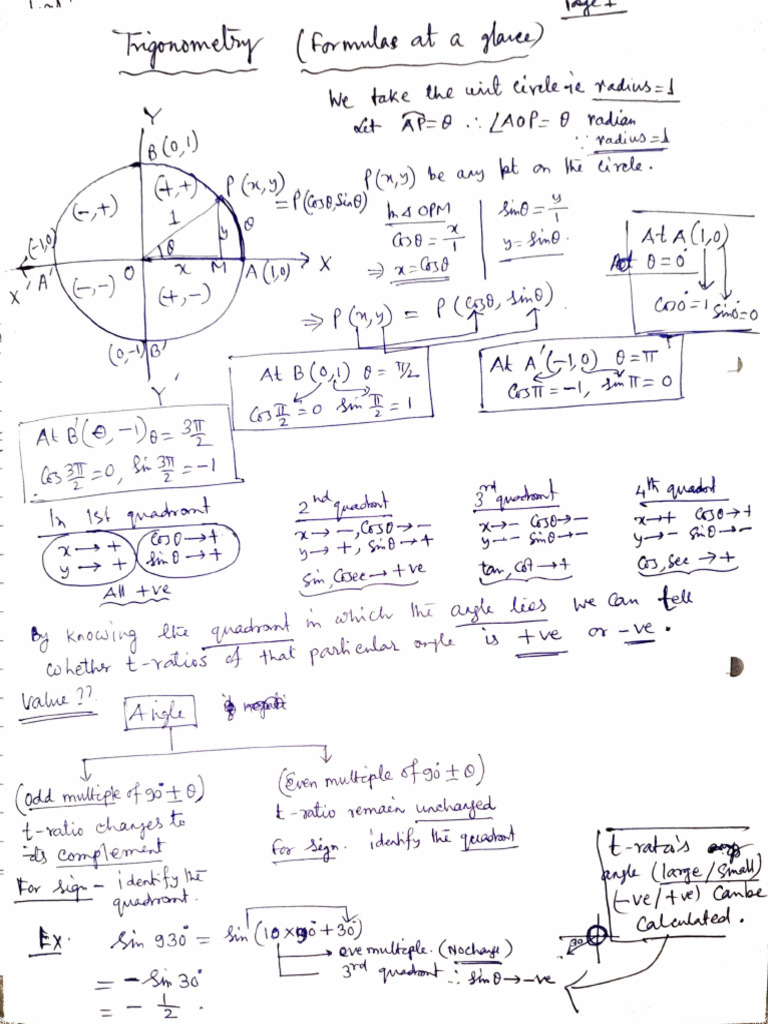 Page 1
Trigonometry (Formulas at a glance)
We take the unit circle ie radius = 1
Let AP = θ ∴ ∠AOP = θ radian
∵ radius = 1
P(x,y) be any pt on the circle.
Y
B(0,1)
(-,+)
(+,+)
P(x,y)
= P(Cosθ, Sinθ)
1
θ
y
θ
(-1,0)
X'
A'
O
x
M
A(1,0)
X
(-,-)
(+,-)
(0,-1)B'
Y'
In Δ OPM
Cosθ = x/1
⇒ x = Cosθ
Sinθ = y/1
y = Sinθ.
⇒ P(x,y) = P(Cosθ, Sinθ).
At A(1,0)
θ = 0°
Cos0° = 1 Sin0° = 0
At B(0,1) θ = π/2
Cos π/2 = 0 Sin π/2 = 1
At A'(-1,0) θ = π
Cosπ = -1, Sinπ = 0
At B'(0,-1) θ = 3π/2
Cos 3π/2 = 0, Sin 3π/2 = -1
In 1st quadrant
x → + Cosθ → +
y → + Sinθ → +
All +ve
2nd quadrant
x → -, Cosθ → -
y → +, Sinθ → +
Sin, Cosec → +ve
3rd quadrant
x → - Cosθ → -
y → - Sinθ → -
tan, Cot → +
4th quadrant
x → + Cosθ → +
y → - Sinθ → -
Cos, Sec → +
By knowing the quadrant in which the angle lies we can tell
whether t-ratios of that particular angle is +ve or -ve.
Value??
Angle
(Odd multiple of 90° ± θ)
t-ratio changes to
its complement
For sign - identify the
quadrant.
(Even multiple of 90° ± θ)
t-ratio remain unchanged
For sign. identify the quadrant
t-ratio's
angle (large/small)
(-ve/+ve) Can be
Calculated.
Ex. Sin 930° = Sin (10×90° + 30°)
eve multiple. (No change)
3rd quadrant ∴ Sinθ → -ve
30°
= - Sin 30°
= - 1/2.